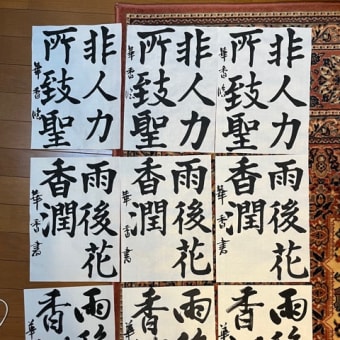 非人力
所致聖
華香臨
非人力
所致聖
華香臨
非人力
所致聖
華香臨
雨後花
香潤
華香書
雨後花
香潤
華香書
雨後花
香潤
華香書
雨後
香
雨後
香
雨後
香
華